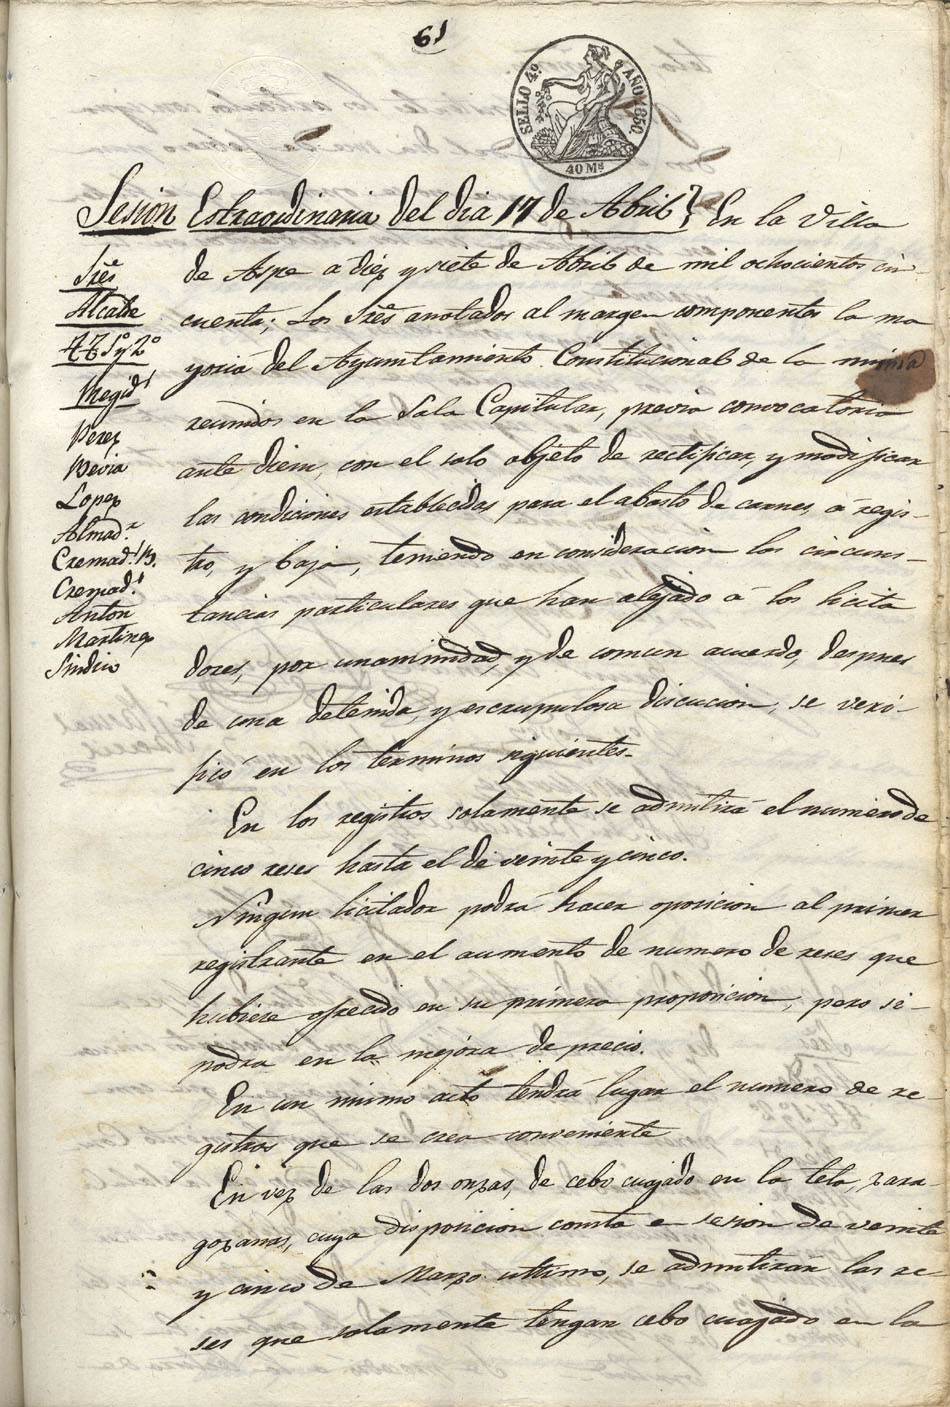 61
SELLO 4º AÑO 1850.
40 Ms
Sesion Extraordinaria del dia 17 de Abril} En la Villa
de Aspe á diez y siete de Abril de mil ochocientos cin-
cuenta; Los Sres anotados al margen componentes la ma
yoria del Ayuntamiento Constitucional de la misma
reunidos en la Sala Capitular, previa convocatoria
ante diem, con el solo objeto de rectificar, y modificar
las condiciones establecidas para el abasto de carnes, á regis-
tro, y baja, teniendo en consideracion las circuns-
tancias particulares que han alejado á los licita
dores, por unanimidad, y de comun acuerdo, despues
de una detenida, y escrupulosa discucion, se veri-
ficó en los terminos siguientes.
En los registros solamente se admitirá el numero de
cinco reses hasta el de veinte y cinco.
Ningun licitador podrá hacer oposicion al primer
registrante en el aumento de numero de reses que
hubiere ofrecido en su primera proposicion, pero si-
podra en la mejora de precio.
En un mismo acto tendrá lugar el numero de re-
gistros que se crea conveniente
En vez de las dos onzas, de cebo cuajado en la teta, zara-
gozanas, cuya disposicion consta en sesion de veinte
y cinco de Marzo ultimo, se admitirán las re-
ses que solamente tengan cebo cuajado en la
Sres
Alcalde
1º y 2º
Regids
Perez
Devia
Lopez
Almadr
Cremads
Cremads
Anton
Martinez
Sindico